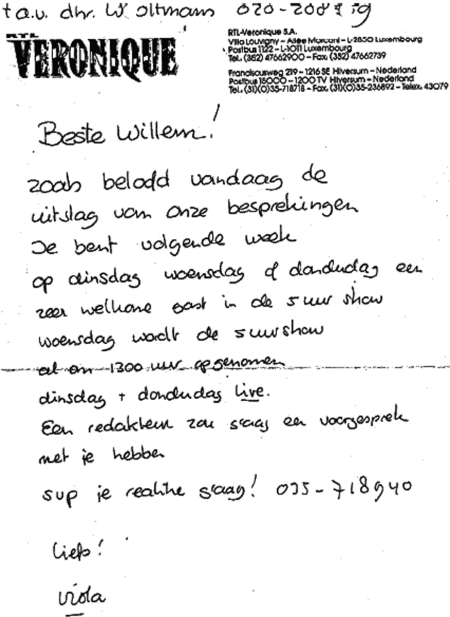 t.a.v. dhr. W. Oltmans 020-
RTL
VERONIQUE
RTL-Veronique S.A.
Villa Louvigny - Allée Marconi - L-2850 Luxembourg
Postbus 1122 - L-1011 Luxembourg
Tel. (352) 47662900 - Fax. (352) 47662739
Franciscusweg 219 - 1216 SE Hilversum - Nederland
Postbus 15000 - 1200 TV Hilversum - Nederland
Tel. (31)(0)35-718718 - Fax. (31)(0)35-236892 - Telex. 43079
Beste Willem!
zoals beloofd vandaag de
uitslag van onze besprekingen
Je bent volgende week
op dinsdag woensdag of donderdag een
zeer welkome gast in de 5 uur show
woensdag wordt de 5 uurshow
al om 1300 uur opgenomen
dinsdag + donderdag live.
Een redakteur zou graag een voorgesprek
met je hebben
svp je reaktie graag! 035-718940
Liefs!
Viola